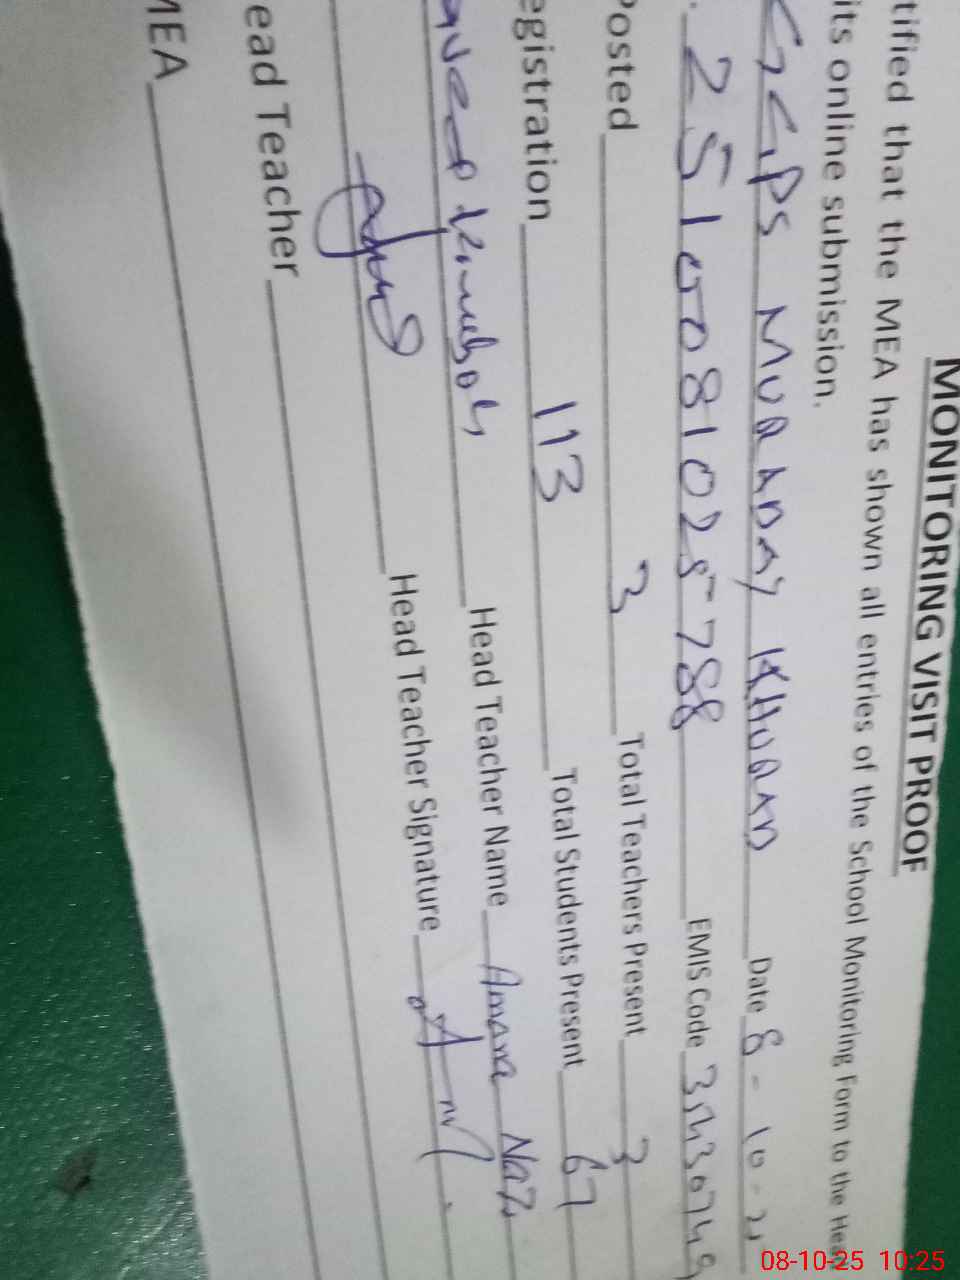 MONITORING VISIT PROOF
tified that the MEA has shown all entries of the School Monitoring Form to the Head
its online submission.
GGPS MURADAY KHURAD Date 8-10-25
2510081025788 EMIS Code
Posted 3 Total Teachers Present 3
egistration 113 Total Students Present 67
Head Teacher Name Amara Naz
Head Teacher Signature
ead Teacher
MEA
08-10-25 10:25